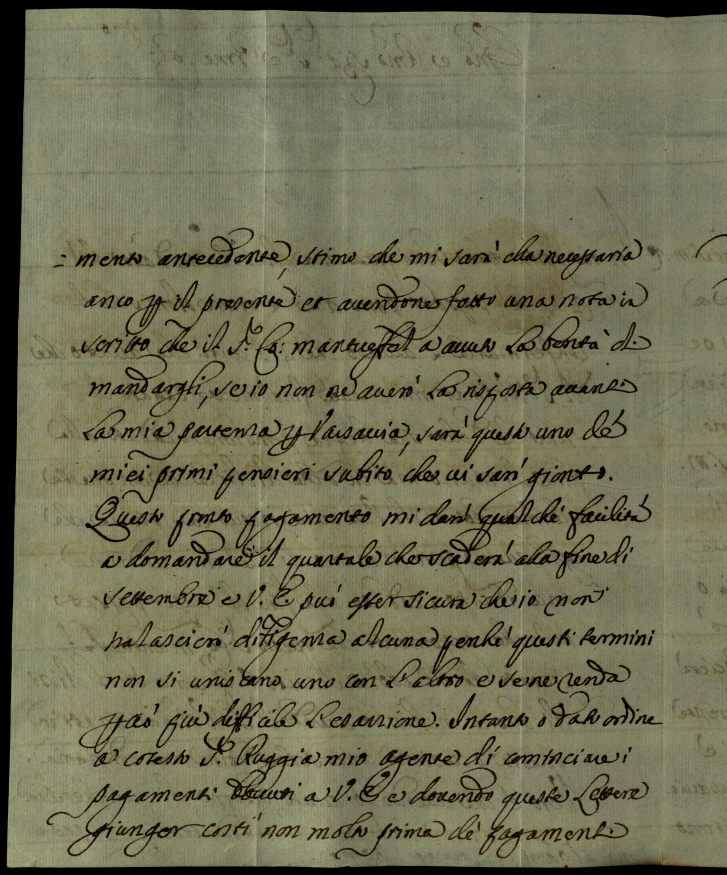 = mento antecedente, stimo che mi sarà che necessaria
anco p il presente et avendone fatto una nota in
scritto che il S.r Co: mantueffel a avuto La bontà di
mandargli, se io non ne averò La risposta avanti
La mia partenza p Varsavia, sarà questo uno de'
miei primi pensieri subito che vi sarò gionto.
Questo pronto pagamento mi darà qualche facilità
a domandare il quartale che scaderà alla fine di
settembre e V. E può esser sicura che io non
tralascierò diligenza alcuna perché questi termini
non si uniscano uno con L'altro e se ne renda
p ciò più difficile L'esazione. Intanto o dato ordine
a cotesto S.r Ruggia mio agente di cominciare i
pagamenti dovuti a V. E e dovendo queste Lettere
giunger costì non molto prima de' pagamenti